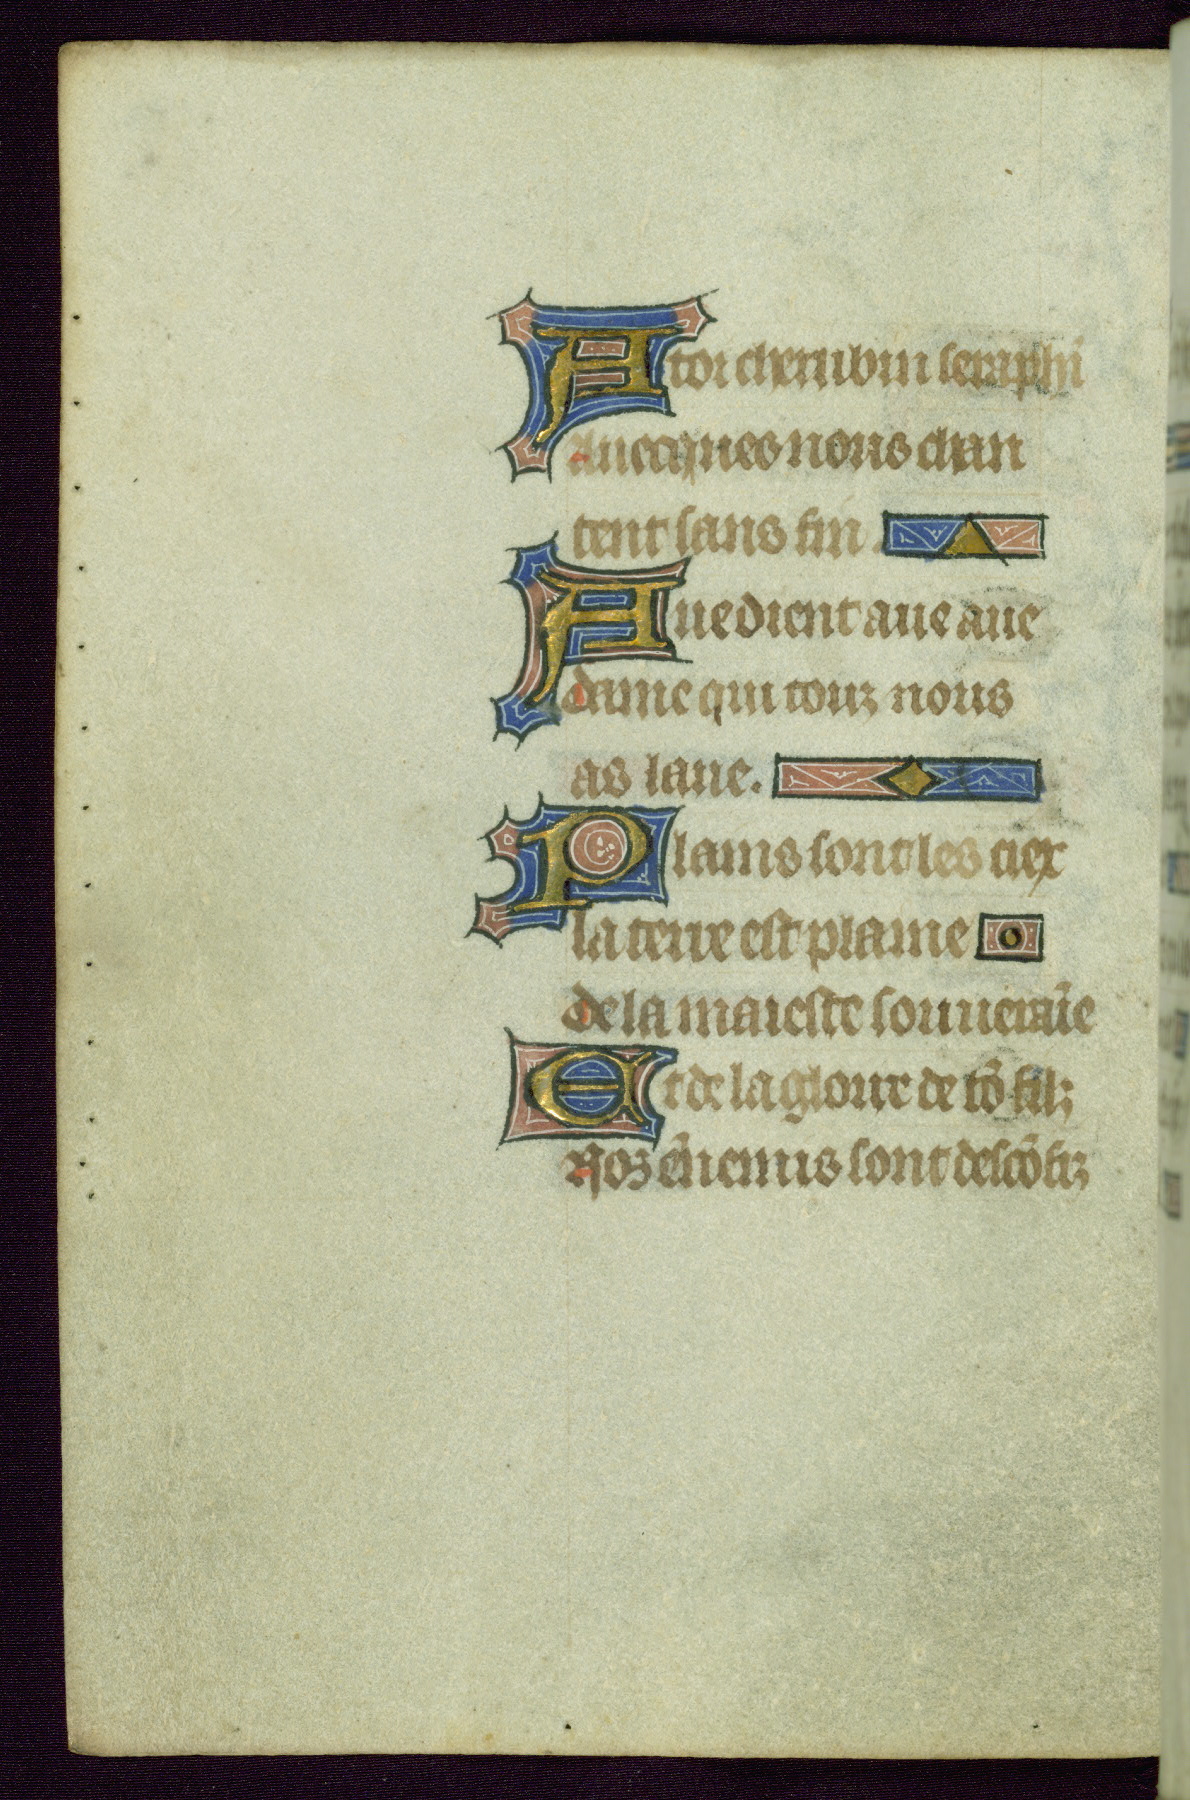 A toi cherubin seraphī
Auecques nous chan
tent sans fin
Aue dient aue aue
dame qui touz nous
as laue.
Plains sont les ciex
la terre est plaine
de la maieste souueraīe
Et de la gloire de tō filz
Noz ēnemis sont descōfiz